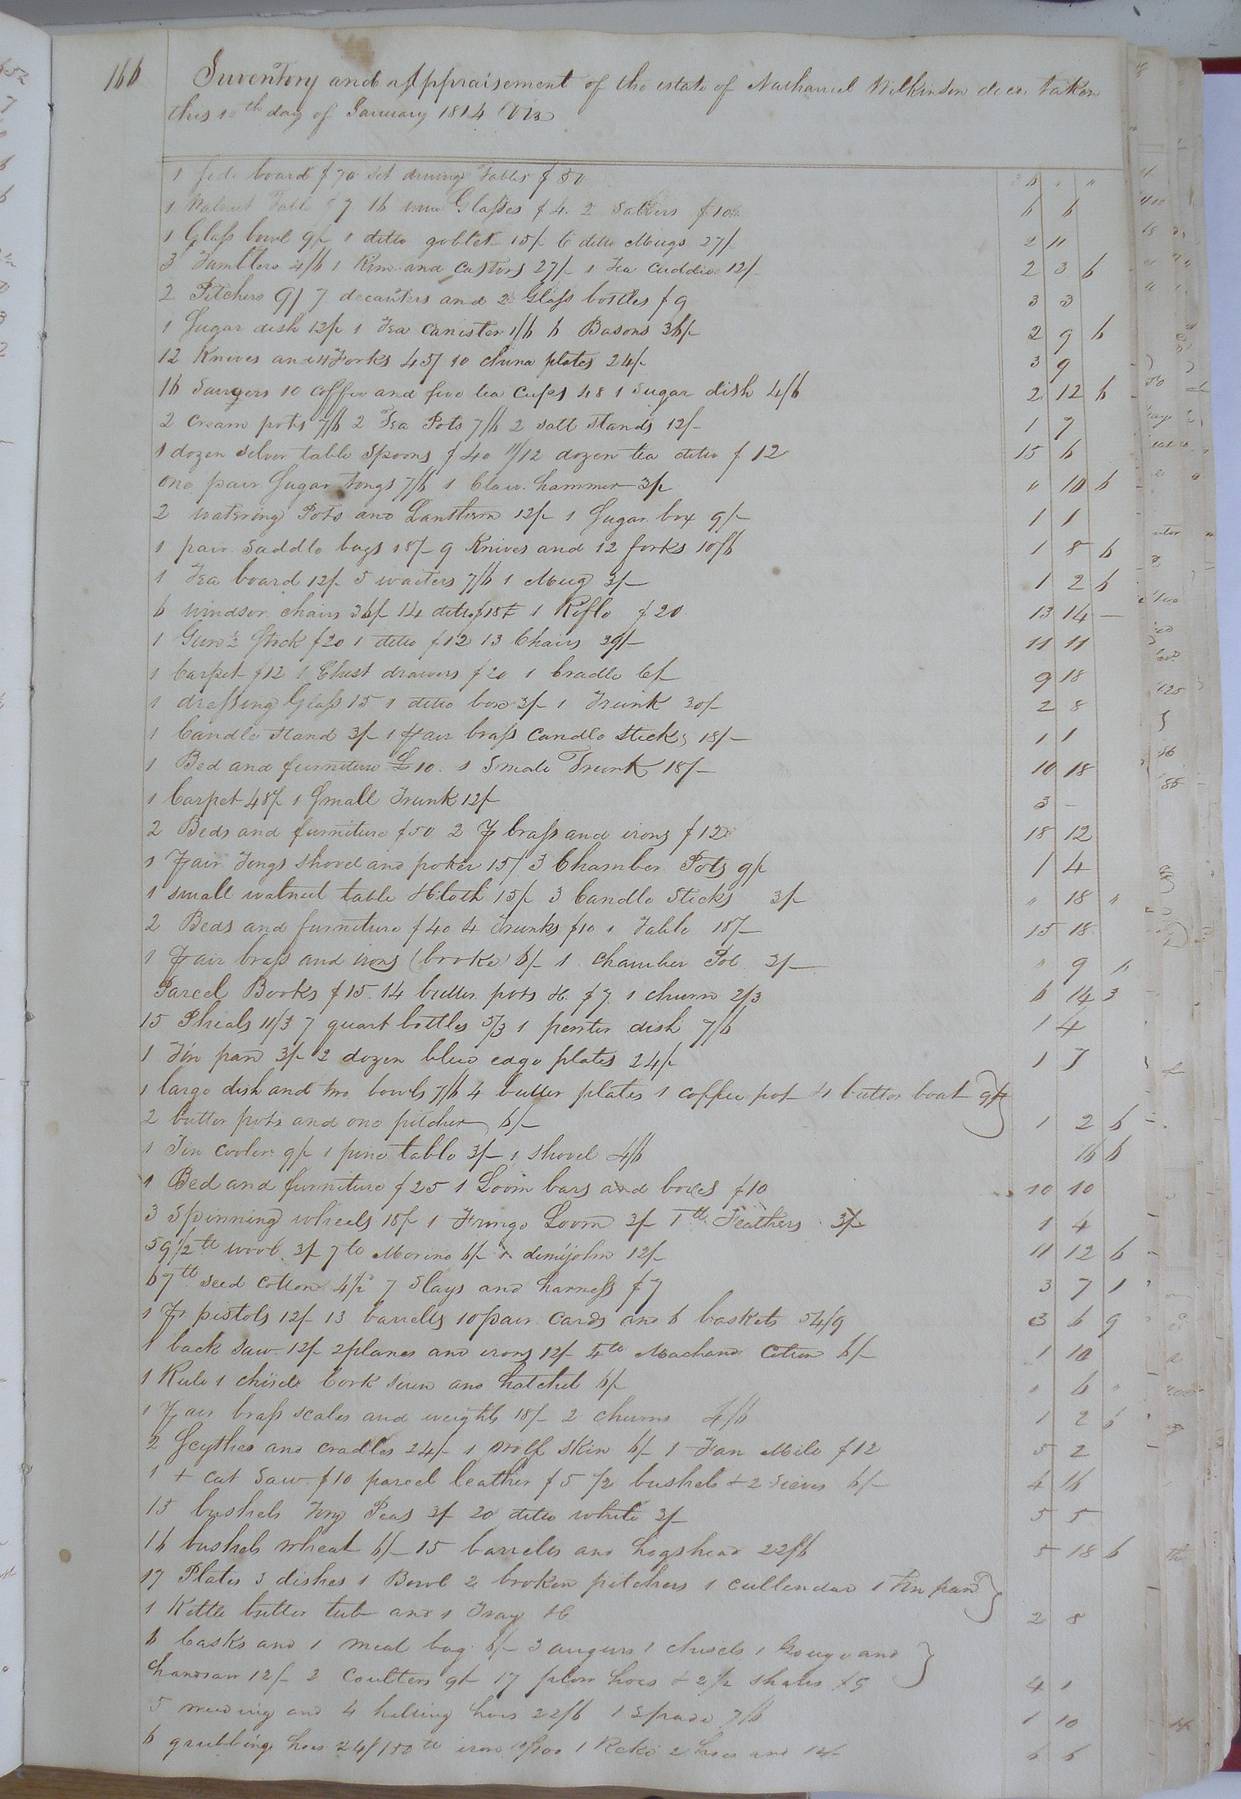 166
Inventory and Appraisement of the estate of Nathaniel Wilkinson decd taken
this 10th day of January 1814 Viz
1 side board $70 set dining Tables $50 36 " "
1 Walnut Table $7 16 wine Glasses $4. 2 Salvers $10 6 6
1 Glass bowl 9/- 1 ditto goblet 15/- 6 ditto Mugs 27/- 2 11
3 Tumblers 4/6 1 Rim and Castors 27/- 1 Tea Caddie 12/- 2 3 6
2 Pitchers 9/ 7 decanters and 2 Glass bottles $9 3 3
1 Sugar dish 12/- 1 Tea Canister 1/6 6 Basons 36/- 2 9 6
12 Knives and 11 Forks 45/ 10 china plates 24/- 3 9
16 Saucers 10 coffee and five tea cups 48 1 Sugar dish 4/6 2 12 6
2 cream pots 7/6 2 Tea Pots 7/6 2 salt stands 12/- 1 7
1 dozen silver table Spoons $40 11/12 dozen tea ditto $12 15 6
one pair Sugar tongs 7/6 1 Claw hammer 3/- " 10 6
2 watering Pots and Lanthern 12/- 1 Sugar box 9/- 1 1
1 pair Saddle bags 18/- 9 Knives and 12 forks 10/6 1 8 6
1 Tea board 12/- 5 waiters 7/6 1 Mug 3/- 1 2 6
6 windsor chairs 36/- 14 ditto $15 1 Rifle $20 13 14 —
1 Gun & Stock $20 1 ditto $12 13 Chairs 39/- 11 11
1 Carpet $12 1 Chest drawers $20 1 Cradle 6/- 9 18
1 dressing Glass 15 1 ditto box 3/- 1 Trunk 30/- 2 8
1 Candle stand 3/- 1 pair brass candle sticks 18/- 1 1
1 Bed and furniture £10. 1 Small Trunk 18/- 10 18
1 Carpet 48/ 1 Small Trunk 12/- 3 -
2 Beds and furniture $50 2 pr brass and irons $12 18 12
1 pair Tongs shovel and poker 15/ 3 Chamber Pots 9/- 1 4
1 small walnut table & Cloth 15/- 3 Candle Sticks 3/- " 18 "
2 Beds and furniture $40 4 Trunks $10 1 Table 18/- 15 18
1 pair brass and irons (broke) 6/- 1 chamber Pot 3/- " 9 "
Parcel Books $15. 14 butter pots &c $7. 1 churn 2/3 6 14 3
15 Phials 11/3 7 quart bottles 5/3 1 pewter dish 7/6 1 4
1 Tin pan 3/- 2 dozen blue edge plates 24/- 1 7
1 large dish and two bowls 7/6 4 butter plates 1 coffee pot 4 butter boat 9/-
2 butter pots and one pitcher 6/- 1 2 6
1 Tin cooler 9/- 1 pine table 3/- 1 shovel 4/6 16 6
1 Bed and furniture $25 1 Loom bars and boxes $10 10 10
3 Spinning wheels 18/- 1 Fringe Loom 3/- 1 lb Feathers 3/- 1 4
59 1/2 lb wool 3/- 7 lb Merino 6/- & demijohn 12/- 11 12 6
67 lb seed cotton 4/2 7 Slays and harness $7 3 7 1
1 Pr pistols 12/- 13 barrells 10 pair cards and 6 baskets 54/9 3 6 9
1 back saw 12/- 2 planes and irons 12/- 4 lb Machand Cotton 6/- 1 10
1 Rule 1 chisele Cork screw and hatchet 6/- " 6 "
1 pair brass scales and weights 18/- 2 churns 4/6 1 2 6
2 Scythes and cradles 24/- 1 wolf skin 6/- 1 Fan Mile $12 5 2
1 + cut Saw $10 parcel leather $5 1/2 bushels & 2 sieves 6/- 4 16
15 bushels Peas 3/- 20 ditto white 3/- 5 5
16 bushels wheat 6/- 15 barreles and hogshead 22/6 5 18 6
17 Plates 3 dishes 1 Bowl 2 broken pitchers 1 cullendar 1 tin pan
1 Kettle butter tub and 1 Tray &c 2 8
6 Casks and 1 meal bag 6/- 3 augurs 1 chisels 1 Gouge and
handsaw 12/- 2 Coulters 9/- 17 plow hoes & 2 1/2 shares $5 4 1
5 weeding and 4 hilling hoes 22/6 1 Spade 7/6 1 10
6 grubbing hoes 24/ 150 lb iron 1 2 hoes and 12/- 6 6